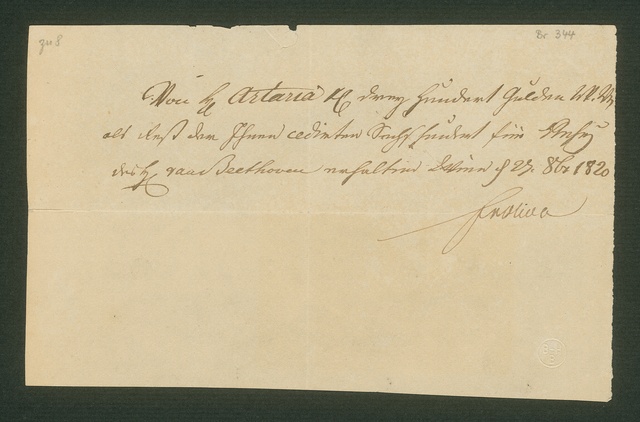 zu 8
Br. 344
Von H Artaria drey Hundert Gulden W.W.
als Rest der Ihnen cedirten Sechshundert für
des H van Beethoven erhalten Wien 27. 8br 1820